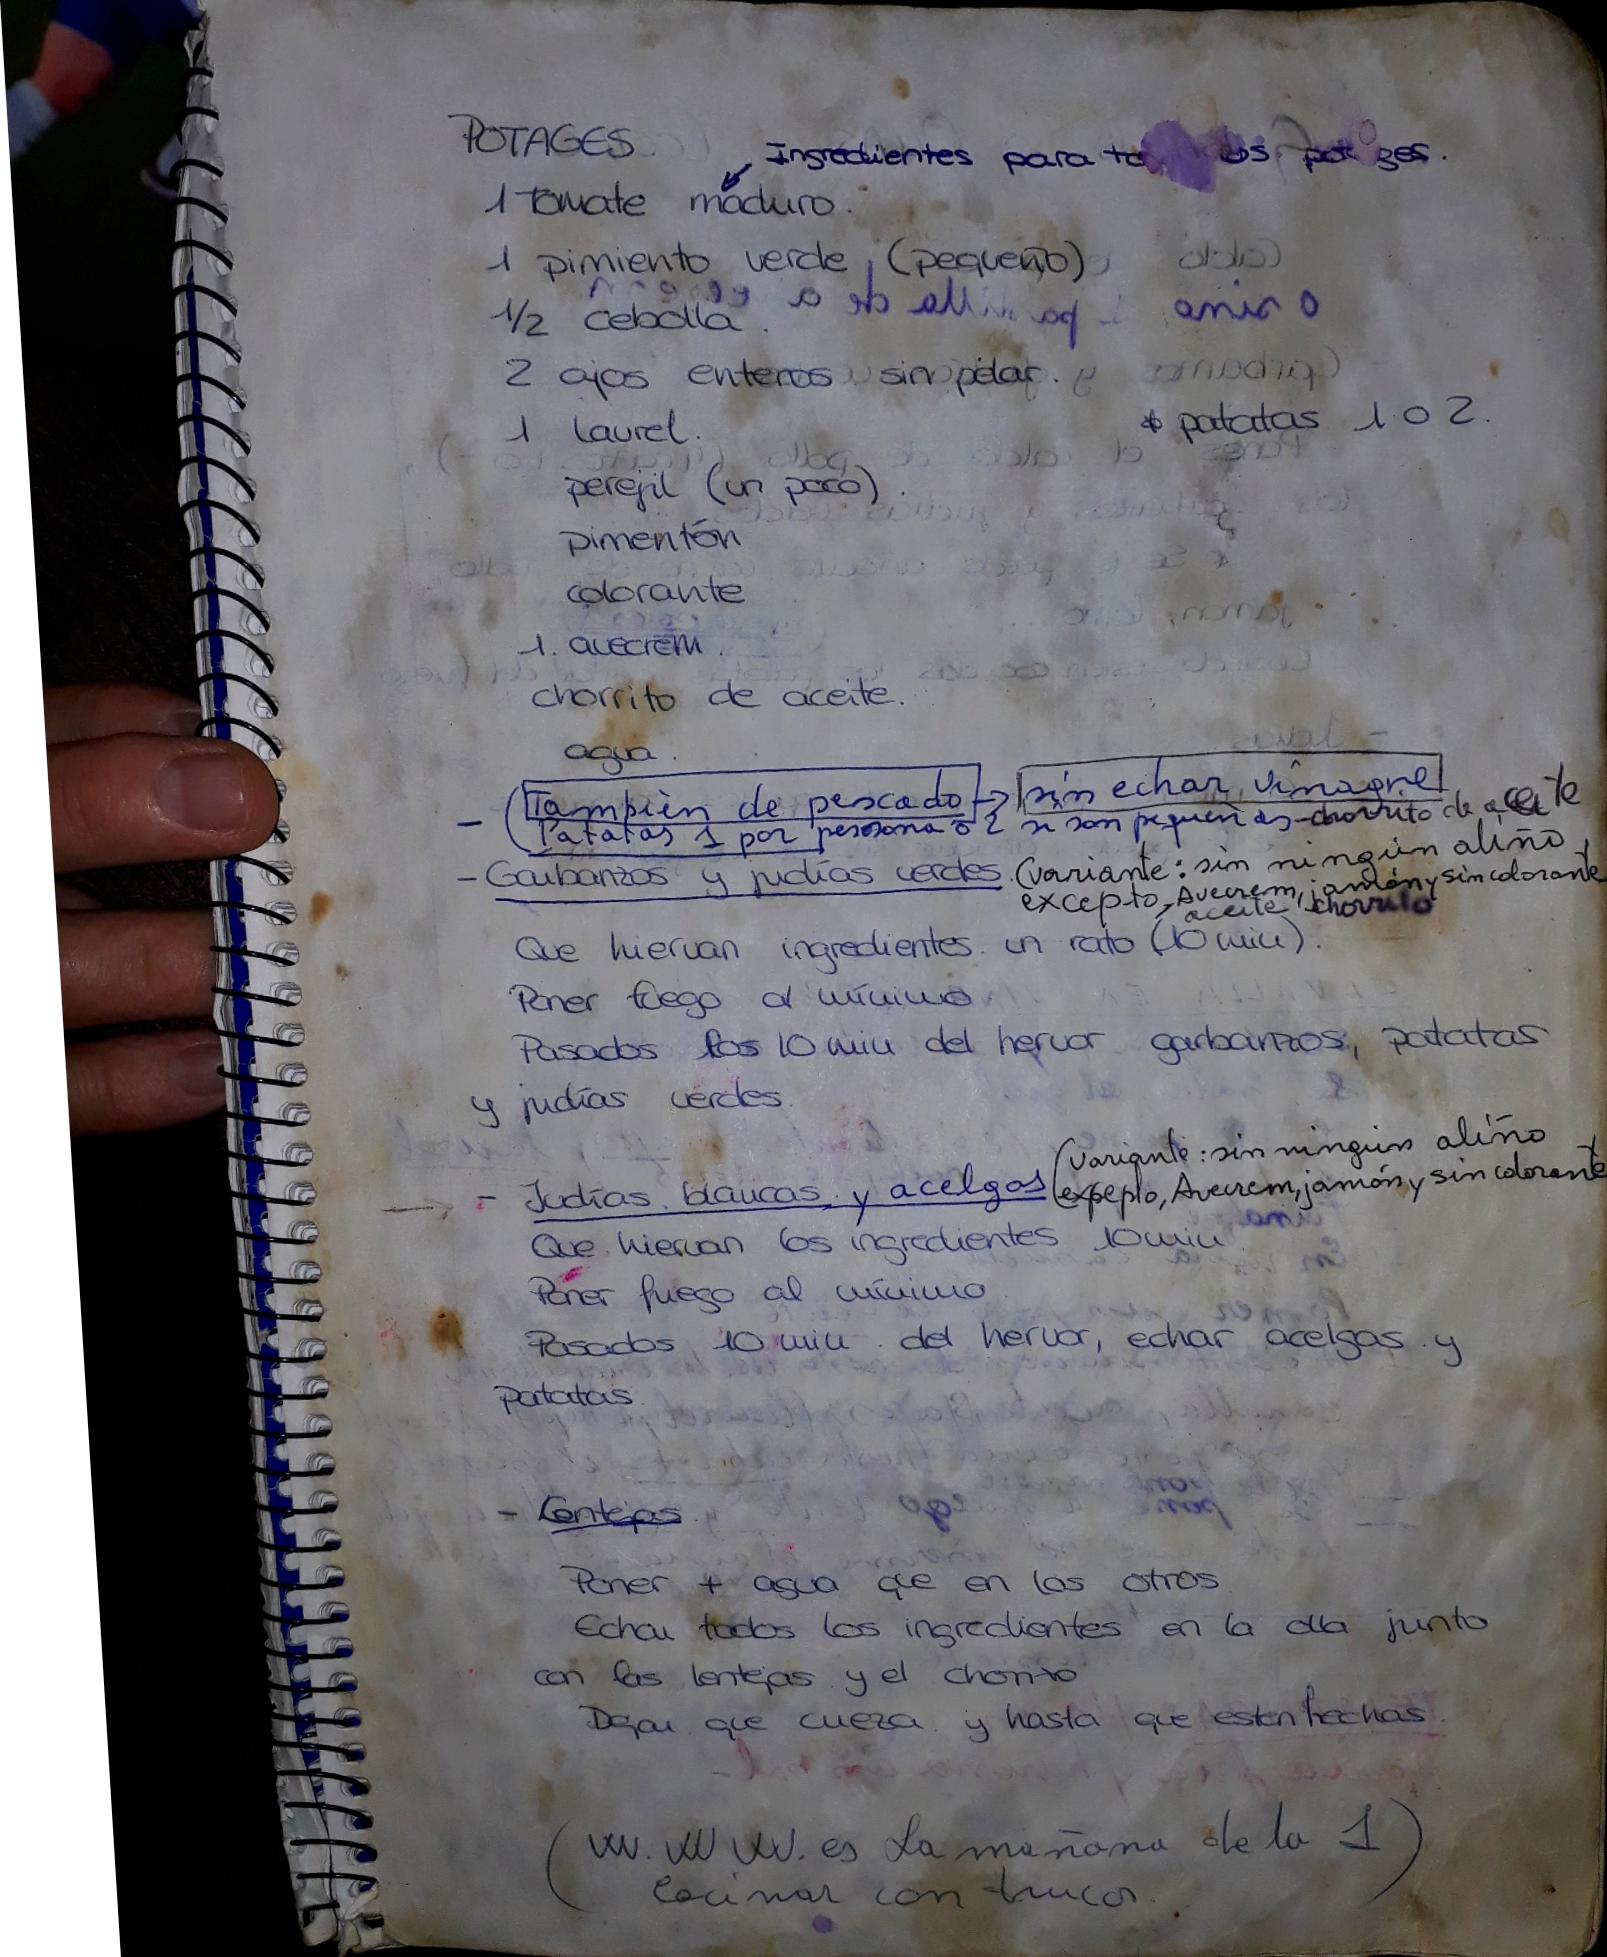 POTAGES.
Ingredientes para los potages.
1 tomate maduro.
1 pimiento verde (pequeño)
1/2 cebolla.
2 ajos enteros sin pelar.
1 laurel.
* patatas 1 o 2.
perejil (un poco).
pimentón
colorante
1. avecrem.
chorrito de aceite.
agua.
- (También de pescado → sin echar vinagre
Patatas 1 por persona o 2 si son pequeñas - chorrito de aceite
- Garbanzos y judías verdes. (variante: sin ningún aliño
excepto, Avecrem, jamón y sin colorante
aceite chorrito
Que hiervan ingredientes un rato (10 min).
Poner fuego al mínimo
Pasados los 10 min del hervor garbanzos, patatas
y judías verdes.
- Judías blancas y acelgas (variante: sin ningún aliño
excepto, Avecrem, jamón y sin colorante
Que hiervan los ingredientes 10 min
Poner fuego al mínimo
Pasados 10 min del hervor, echar acelgas y
patatas.
- Lentejas
Poner + agua que en los otros
Echar todos los ingredientes en la olla junto
con las lentejas y el chorizo
Dejar que cueza y hasta que esten hechas.
es La mañana de la 1
cocinar con trucos.